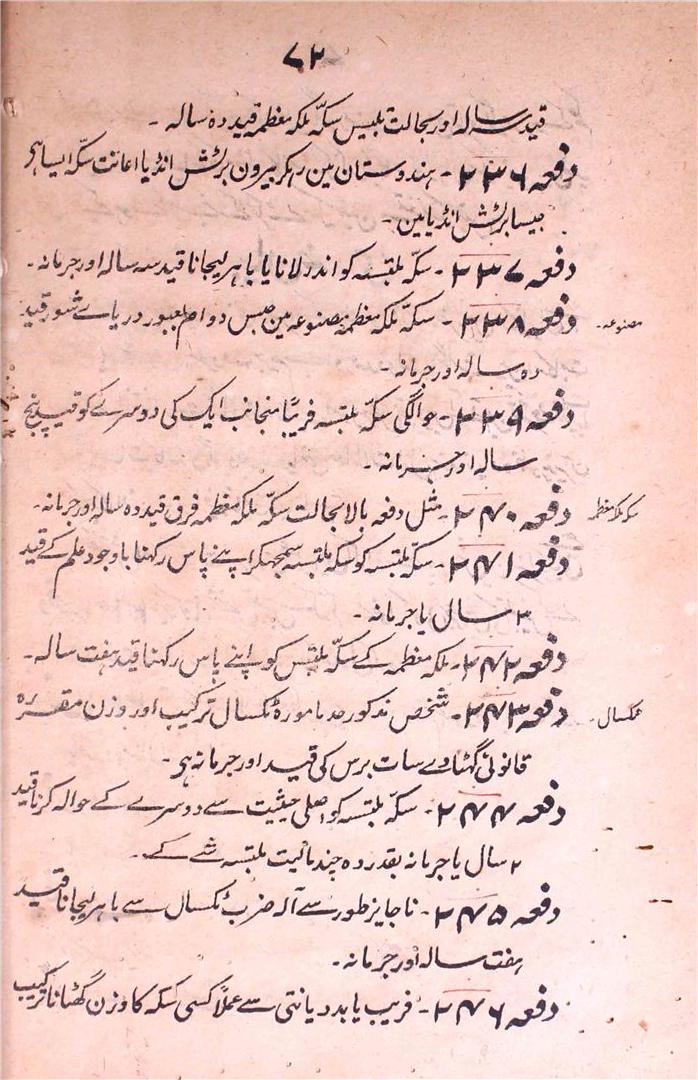 ۷۲
قید سہ سالہ اور بحالت تلبیس سکّہ ملکہ معظمہ قید دہ سالہ ۔
دفعہ ۲۳۶ ۔ ہندوستان مین رہکر بیرون برٹش انڈیا اعانت سکّہ ایسا ہی
جیسا برٹش انڈیا مین ۔
دفعہ ۲۳۷ ۔ سکّہ ملتبسہ کو اندر لانا یا باہر لیجانا قید سہ سالہ اور جرمانہ ۔
مصنوعہ ۔
دفعہ ۲۳۸ ۔ سکّہ ملکہ معظمہ مصنوعہ مین حبس دوام بعبور دریاے شور قید
دہ سالہ اور جرمانہ ۔
دفعہ ۲۳۹ ۔ حوالگی سکّہ ملتبسہ فریبًا منجانب ایک کی دوسرے کو قید پنج
سالہ اور جرمانہ ۔
سکہ ملکہ معظمہ
دفعہ ۲۴۰ ۔ مثل دفعہ بالا بحالت سکّہ ملکہ معظمہ فرق قید دہ سالہ اور جرمانہ ۔
دفعہ ۲۴۱ ۔ سکّہ ملتبسہ کو سکہ ملتبسہ سمجھکر اپنے پاس رکھنا باوجود علم کے قید
۳ سال یا جرمانہ ۔
دفعہ ۲۴۲ ۔ ملکہ معظمہ کے سکّہ ملتبس کو اپنے پاس رکھنا قید ہفت سالہ ۔
ٹکسال ۔
دفعہ ۲۴۳ ۔ شخص مذکور صدر مامورہٴ ٹکسال ترکیب اور وزن مقررہ
قانونی گھٹاوے سات برس کی قید اور جرمانہ ہی ۔
دفعہ ۲۴۴ ۔ سکّہ ملتبسہ کو اصلی حیثیت سے دوسرے کے حوالہ کرنا قید
۲ سال یا جرمانہ بقدر دہ چند مالیت ملتبسہ شے کے ۔
دفعہ ۲۴۵ ۔ ناجایز طور سے آلہ ضرب ٹکسال سے باہر لیجانا قید
ہفت سالہ اور جرمانہ ۔
دفعہ ۲۴۶ ۔ فریب یا بددیانتی سے عملًا کسی سکہ کا وزن گھٹانا ترکیب